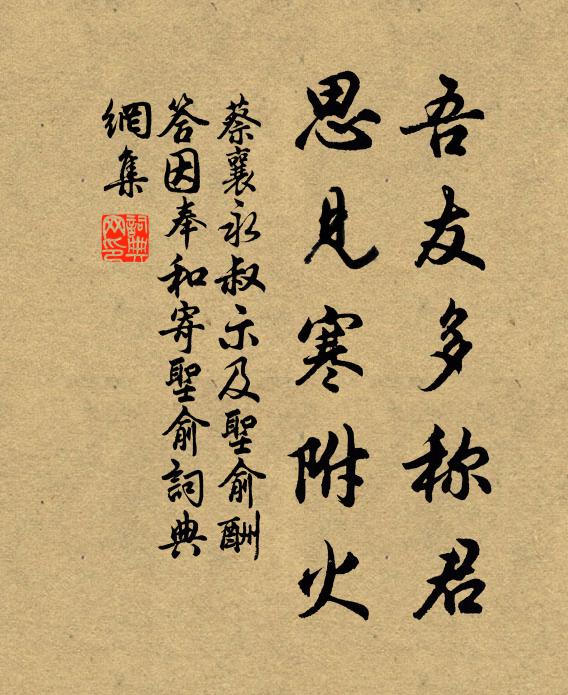 吾友多称君
思見寒附火
蔡襄永叔示及聖俞酬
答因奉和寄聖俞詞典
網集
詞典
网印